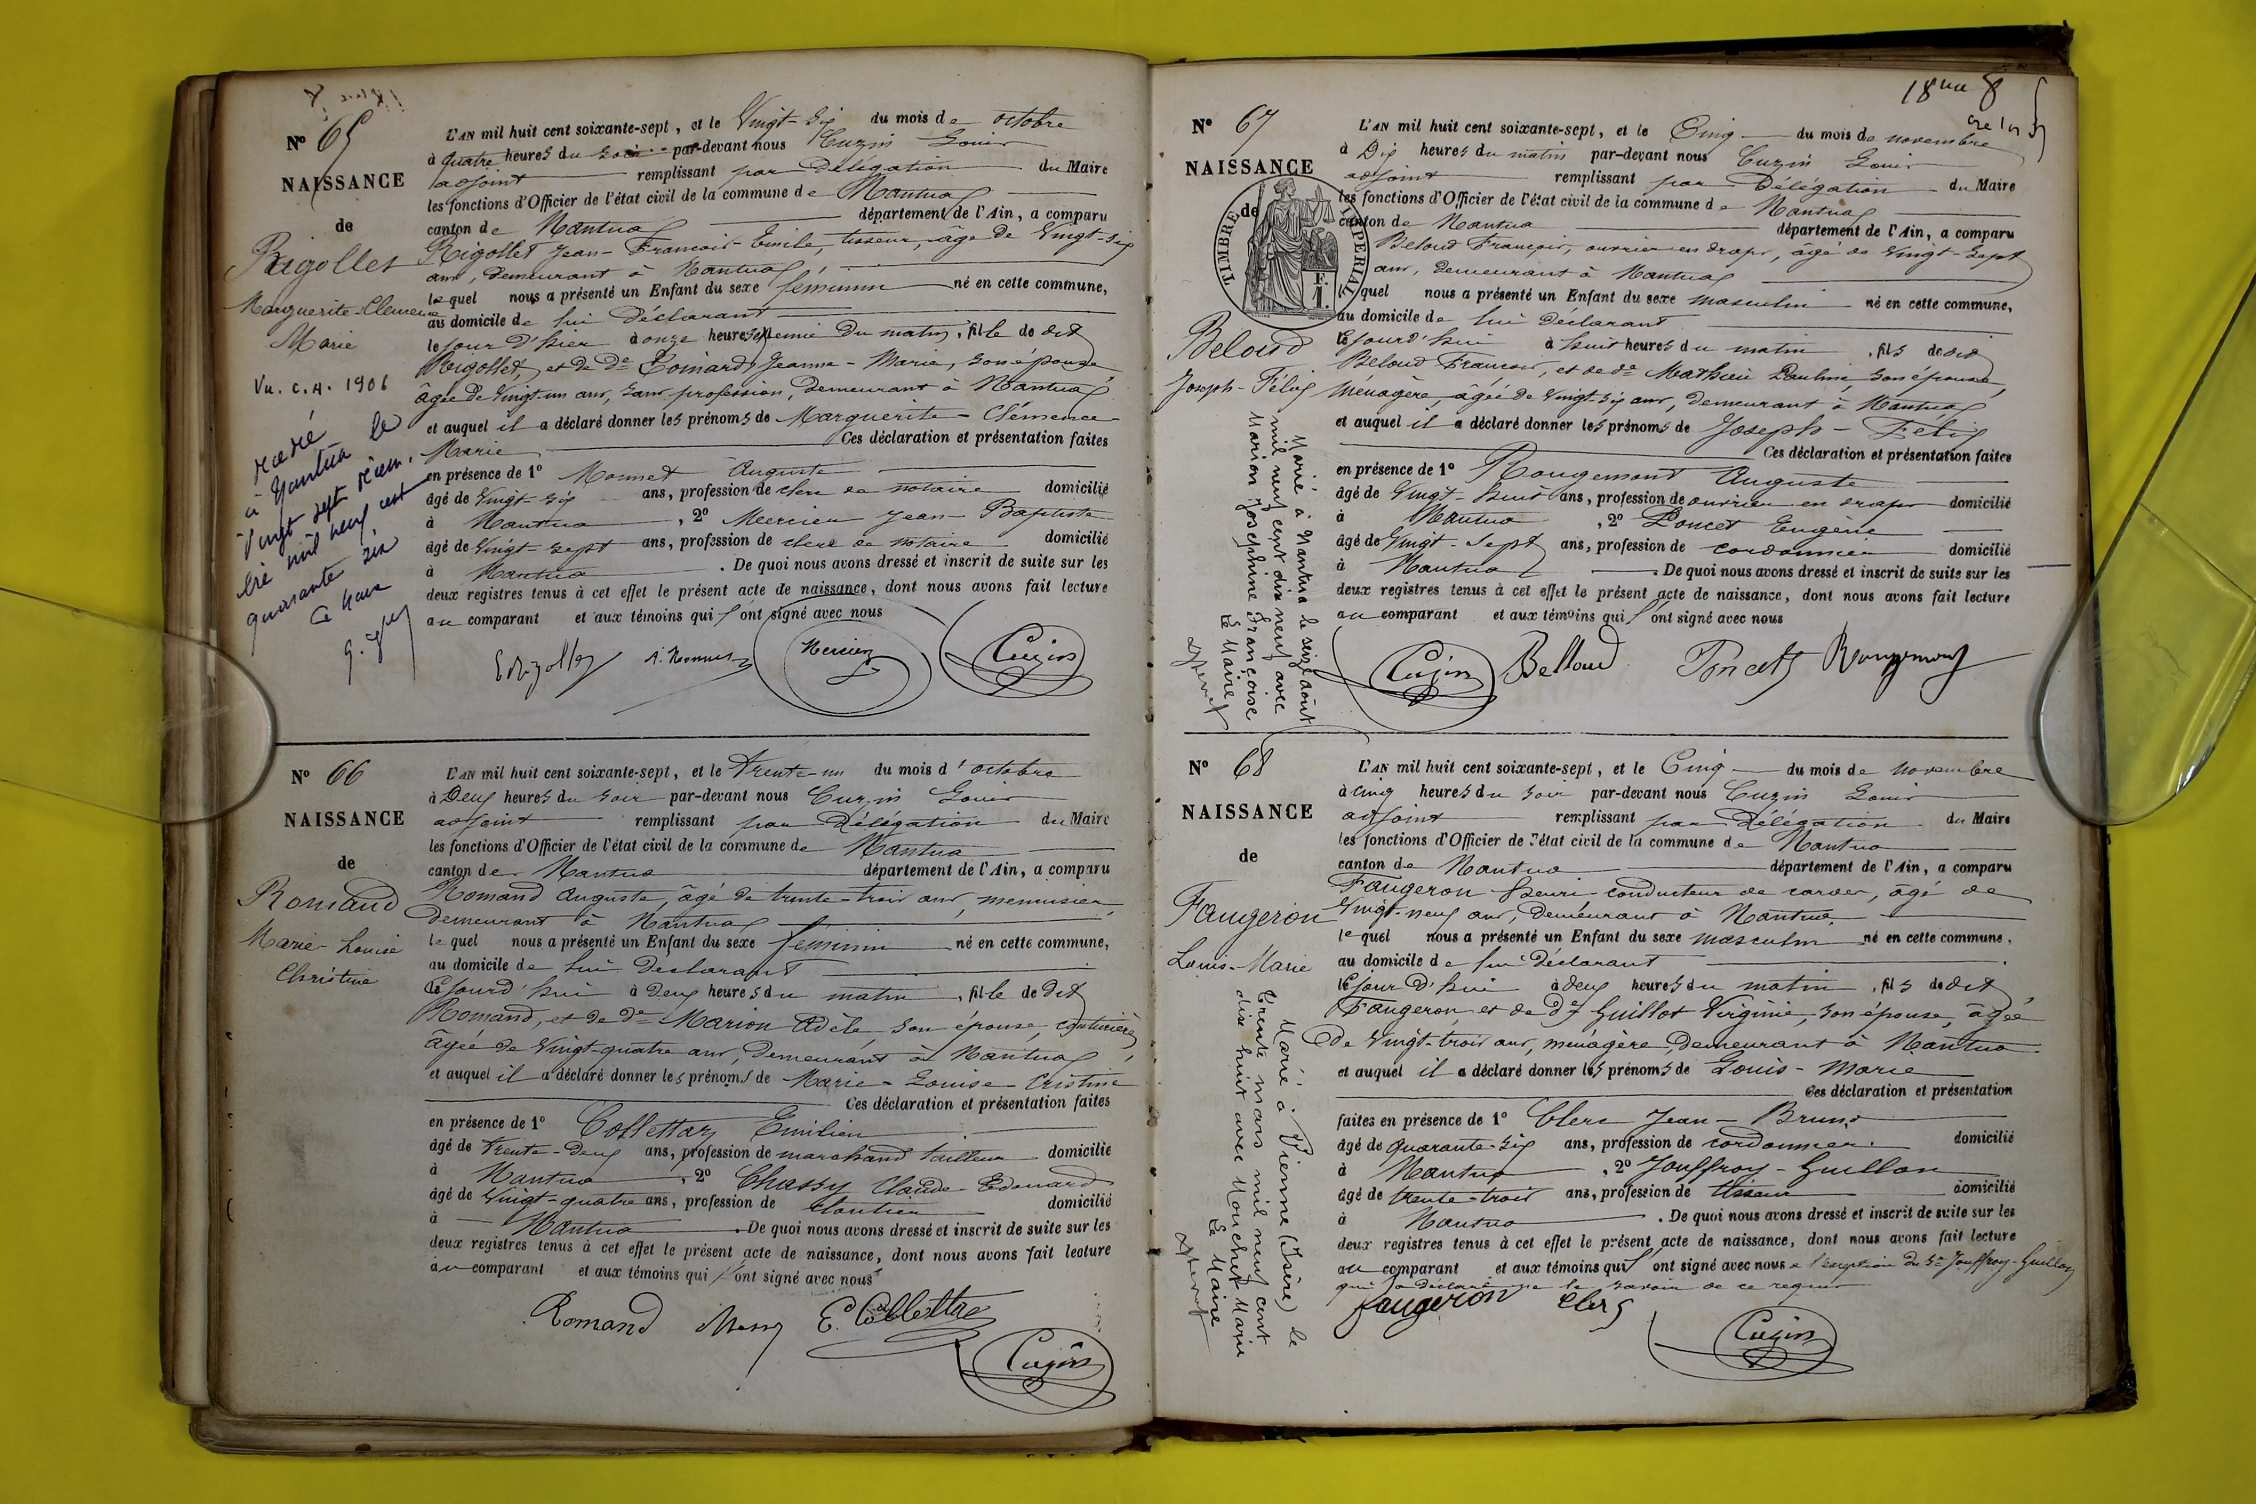 Nº 65
NAISSANCE
de
Rigollet
Marguerite-Clémence
Marie
Vu. C.A. 1906
décédé
à Nantua le
vingt sept décem-
bre mil neuf cent
quarante six
Le Maire
L'AN mil huit cent soixante-sept, et le Vingt-six du mois de octobre
à quatre heures du soir par-devant nous Cuzin Louis
adjoint remplissant par Délégation du Maire
les fonctions d'Officier de l'état civil de la commune de Nantua
canton de Nantua département de l'Ain, a comparu
Rigollet Jean-François-Emile, tisseur, âgé de Vingt-six
ans, demeurant à Nantua
lequel nous a présenté un Enfant du sexe féminin né en cette commune,
au domicile de lui Déclarant
le jour d'hier à onze heures et demie du matin, fille de dit
Rigollet, et de De Poinard Jeanne-Marie, son épouse
âgée de Vingt-un ans, sans profession, demeurant à Nantua
et auquel il a déclaré donner les prénoms de Marguerite-Clémence
Marie Ces déclaration et présentation faites
en présence de 1º Monnet Auguste
âgé de Vingt-six ans, profession de clerc de notaire domicilié
à Nantua, 2º Mercier Jean-Baptiste
âgé de Vingt-sept ans, profession de clerc de notaire domicilié
à Nantua. De quoi nous avons dressé et inscrit de suite sur les
deux registres tenus à cet effet le présent acte de naissance, dont nous avons fait lecture
au comparant et aux témoins qui l'ont signé avec nous
E Rigollet A. Monnet Mercier Cuzin
Nº 66
NAISSANCE
de
Romand
Marie-Louise
Christine
L'AN mil huit cent soixante-sept, et le trente-un du mois d'octobre
à Deux heures du soir par-devant nous Cuzin Louis
adjoint remplissant par Délégation du Maire
les fonctions d'Officier de l'état civil de la commune de Nantua
canton de Nantua département de l'Ain, a comparu
Romand Auguste, âgé de trente-trois ans, menuisier,
demeurant à Nantua
lequel nous a présenté un Enfant du sexe féminin né en cette commune,
au domicile de lui Déclarant
cejourd'hui à Deux heures du matin, fille de dit
Romand, et de De Marion Adèle, son épouse, couturière,
âgée de Vingt-quatre ans, demeurant à Nantua
et auquel il a déclaré donner les prénoms de Marie-Louise-Cristine
Ces déclaration et présentation faites
en présence de 1º Collettaz Emilien
âgé de trente-deux ans, profession de marchand tailleur domicilié
à Nantua, 2º Chassy Claude-Edouard
âgé de Vingt-quatre ans, profession de domicilié
à Nantua. De quoi nous avons dressé et inscrit de suite sur les
deux registres tenus à cet effet le présent acte de naissance, dont nous avons fait lecture
au comparant et aux témoins qui l'ont signé avec nous
Romand E. Collettaz
Cuzin
Nº 67
NAISSANCE
de
TIMBRE IMPERIAL
F.
1.
Beloud
Joseph-Félix
Marié à Nantua le seize août
mil neuf cent dix neuf avec
Marion Joséphine Françoise
Le Maire
L'AN mil huit cent soixante-sept, et le Cinq du mois de novembre
à Dix heures du matin par-devant nous Cuzin Louis
adjoint remplissant par Délégation du Maire
les fonctions d'Officier de l'état civil de la commune de Nantua
canton de Nantua département de l'Ain, a comparu
Beloud François, ouvrier en draps, âgé de Vingt-sept
ans, demeurant à Nantua
lequel nous a présenté un Enfant du sexe masculin né en cette commune,
au domicile de lui déclarant
cejourd'hui à huit heures du matin, fils de dit
Beloud François, et de De Mathieu Pauline son épouse,
ménagère, âgée de Vingt-six ans, demeurant à Nantua
et auquel il a déclaré donner les prénoms de Joseph-Félix
Ces déclaration et présentation faites
en présence de 1º Rougemont Auguste
âgé de Vingt-huit ans, profession de ouvrier en draps domicilié
à Nantua, 2º Poncet Eugène
âgé de Vingt-sept ans, profession de cordonnier domicilié
à Nantua. De quoi nous avons dressé et inscrit de suite sur les
deux registres tenus à cet effet le présent acte de naissance, dont nous avons fait lecture
au comparant et aux témoins qui l'ont signé avec nous
Cuzin Belloud Poncet Rougemont
Nº 68
NAISSANCE
de
Faugeron
Louis-Marie
Marié à Vienne (Isère) le
trente mars mil neuf cent
dix huit avec Mouchet Marie
Le Maire
L'AN mil huit cent soixante-sept, et le Cinq du mois de novembre
à cinq heures du soir par-devant nous Cuzin Louis
adjoint remplissant par Délégation du Maire
les fonctions d'Officier de l'état civil de la commune de Nantua
canton de Nantua département de l'Ain, a comparu
Faugeron Henri-conducteur de cardes, âgé de
Vingt-neuf ans, demeurant à Nantua
lequel nous a présenté un Enfant du sexe masculin né en cette commune,
au domicile de lui déclarant
cejourd'hui à deux heures du matin, fils de dit
Faugeron, et de De Guillot Virginie, son épouse, âgée
de Vingt-trois ans, ménagère, demeurant à Nantua
et auquel il a déclaré donner les prénoms de Louis-Marie
Ces déclaration et présentation
faites en présence de 1º Clerc Jean-Bruno
âgé de quarante-six ans, profession de cordonnier domicilié
à Nantua, 2º Jouffroy-Guillon
âgé de trente-trois ans, profession de tisseur domicilié
à Nantua. De quoi nous avons dressé et inscrit de suite sur les
deux registres tenus à cet effet le présent acte de naissance, dont nous avons fait lecture
au comparant et aux témoins qui l'ont signé avec nous à l'exception du Sr Jouffroy-Guillon
qui a déclaré ne le savoir de ce requis
Faugeron Clerc
Cuzin